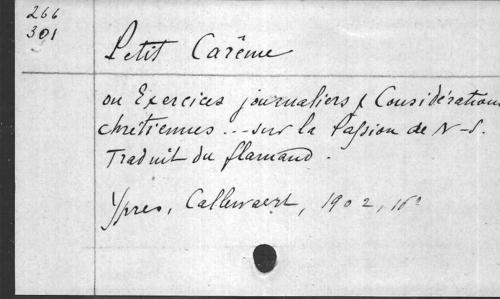 266
301
Petit Carême
ou Exercices journaliers & Considérations
chrétiennes ... sur la Passion de N-S.
Traduit du flamand.
Ypres, Callewaert, 1902, 16°